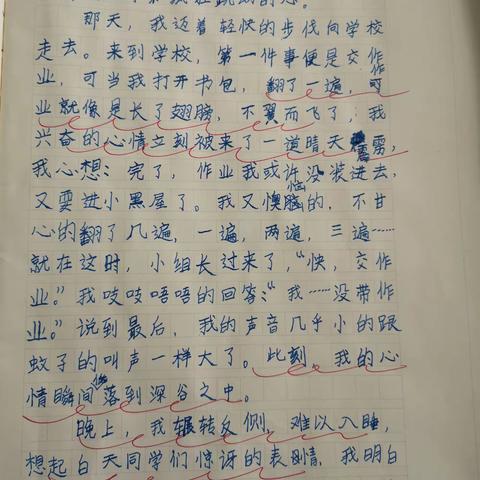 那天，我迈着轻快的步伐向学校
走去。来到学校，第一件事便是交作
业，可当我打开书包，翻了一遍，可作
业就像是长了翅膀，不翼而飞了，我
兴奋的心情立刻被来了一道晴天霹雳，
我心想：完了，作业我或许没装进去，
又要进小黑屋了。我又懊恼的，不甘
心的翻了几遍，一遍，两遍，三遍……
就在这时，小组长过来了，“快，交作
业。”我吱吱唔唔的回答：“我……没带作
业。”说到最后，我的声音几乎小的跟
蚊子的叫声一样大了。此刻，我的心
情瞬间落到深谷之中。
晚上，我辗转反侧，难以入睡，
想起白天同学们惊讶的表情，我明白